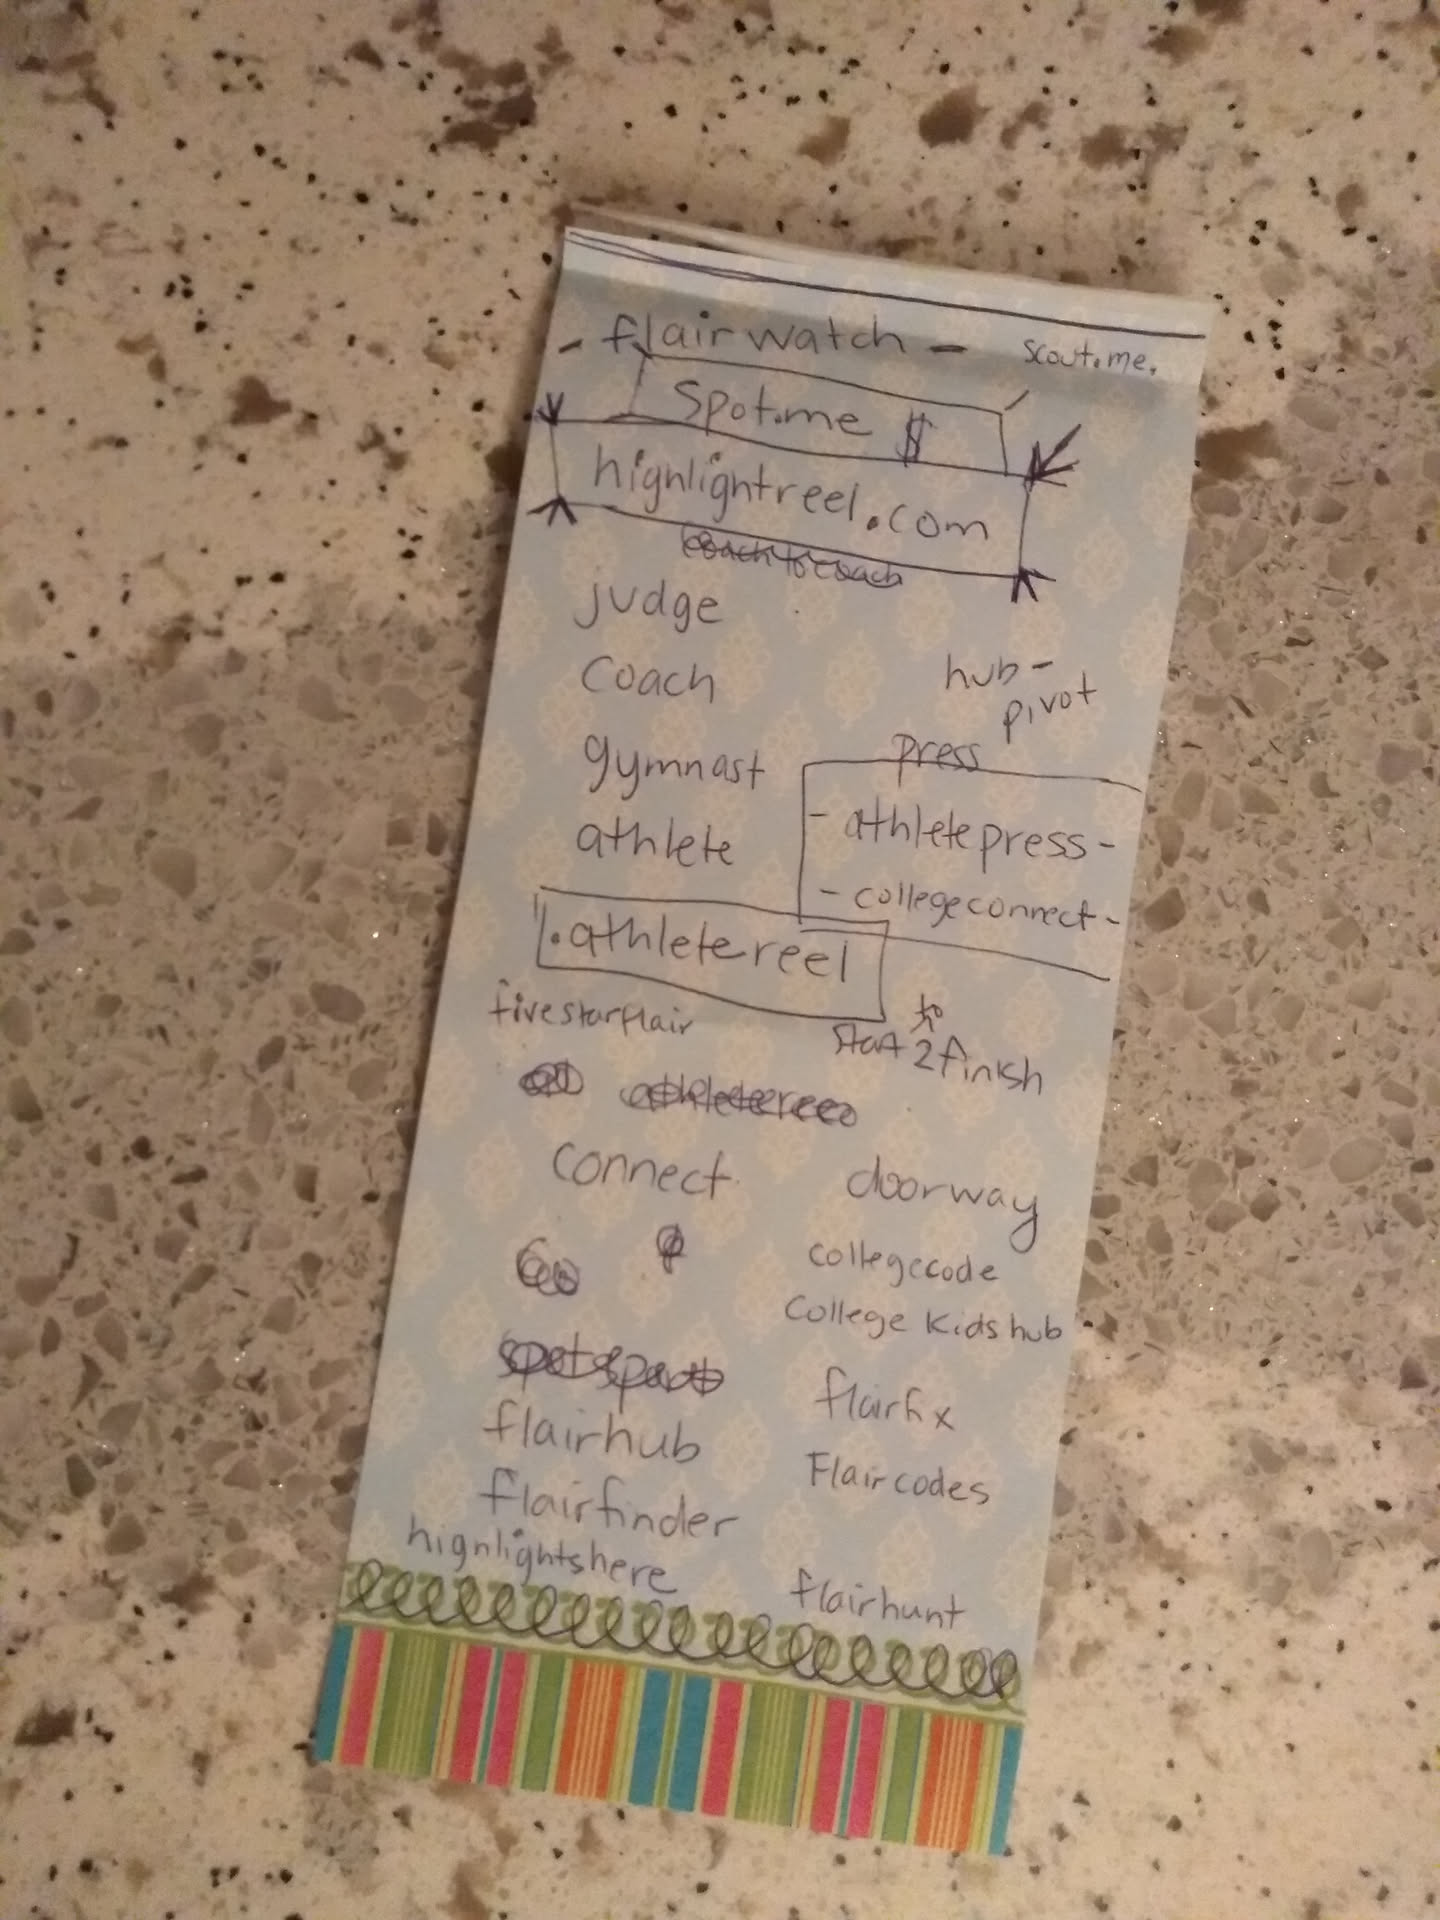 - flairwatch - scout.me.
Spot.me $
highlightreel.com
coach to coach
judge
coach
hub -
pivot
gymnast
press
athlete
- athletepress -
- collegeconnect -
.athletereel
fivestarflair
Start 2 finish
athletereel
connect
doorway
collegecode
College Kids hub
flairfix
flairhub
Flaircodes
flairfinder
highlightshere
flairhunt